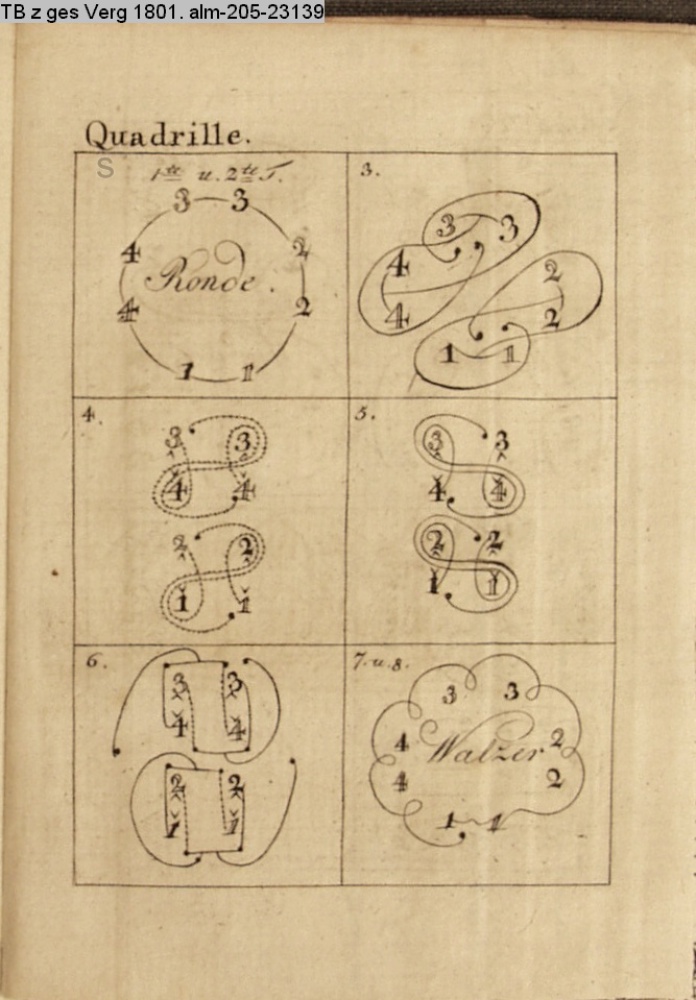 TB z ges Verg 1801. alm-205-23139
Quadrille.
S 1te u. 2te T.
3 3
4 2
Ronde.
4 2
1 1
3.
3 3
4 2
4 2
1 1
4.
3 3
4 4
2 2
1 1
5.
3 3
4 4
2 2
1 1
6.
3 3
4 4
2 2
1 1
7. u. 8.
3 3
4 Walzer 2
4 2
1 1